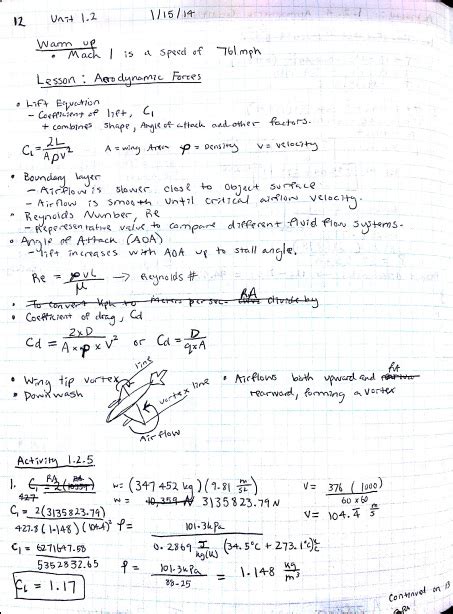 12 Unit 1.2 1/15/14
Warm up
• Mach 1 is a speed of 761mph
Lesson: Aerodynamic Forces
• Lift Equation
- Coefficient of lift, Cl
+ combines shape, Angle of attack and other factors.
Cl = 2L / Aρv² A = wing Area ρ = Density V = velocity
• Boundary layer
- Airflow is slower close to object surface
- Airflow is smooth until critical airflow velocity.
• Reynolds Number, Re
- Representative value to compare different fluid flow systems.
• Angle of Attack (AOA)
- lift increases with AOA up to stall angle.
Re = ρvL / μ → Reynolds #
• To convert Kph to Meters per sec. divide by RA
• Coefficient of drag, Cd
Cd = 2×D / A×ρ×V² or Cd = D / q×A
• Wing tip vortex
• Downwash
line
vortex line
Airflow
• Airflows both upward and RA
rearward, forming a vortex
Activity 1.2.5
1. w = (347 452 kg)(9.81 m/s²) V = 376 (1000) / 60×60
427
w = 10,359 N 3135823.79 N V = 104.4 m/s
Cl = 2(3135823.79) / 427.8(1.148)(104.4)²
ρ = 101.3kPa / 0.2869 J/kg(K) (34.5°C + 273.1°C)
Cl = 6271647.58 / 5352832.65
ρ = 101.3kPa / 88.25 = 1.148 kg/m³
CL = 1.17
Continued on 13